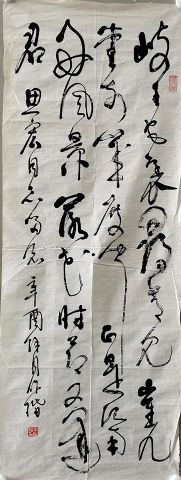 岐王宅里寻常见崔九
堂前几度闻正是江南
好风景落花时节又逢
君 思宏同志留念 辛酉